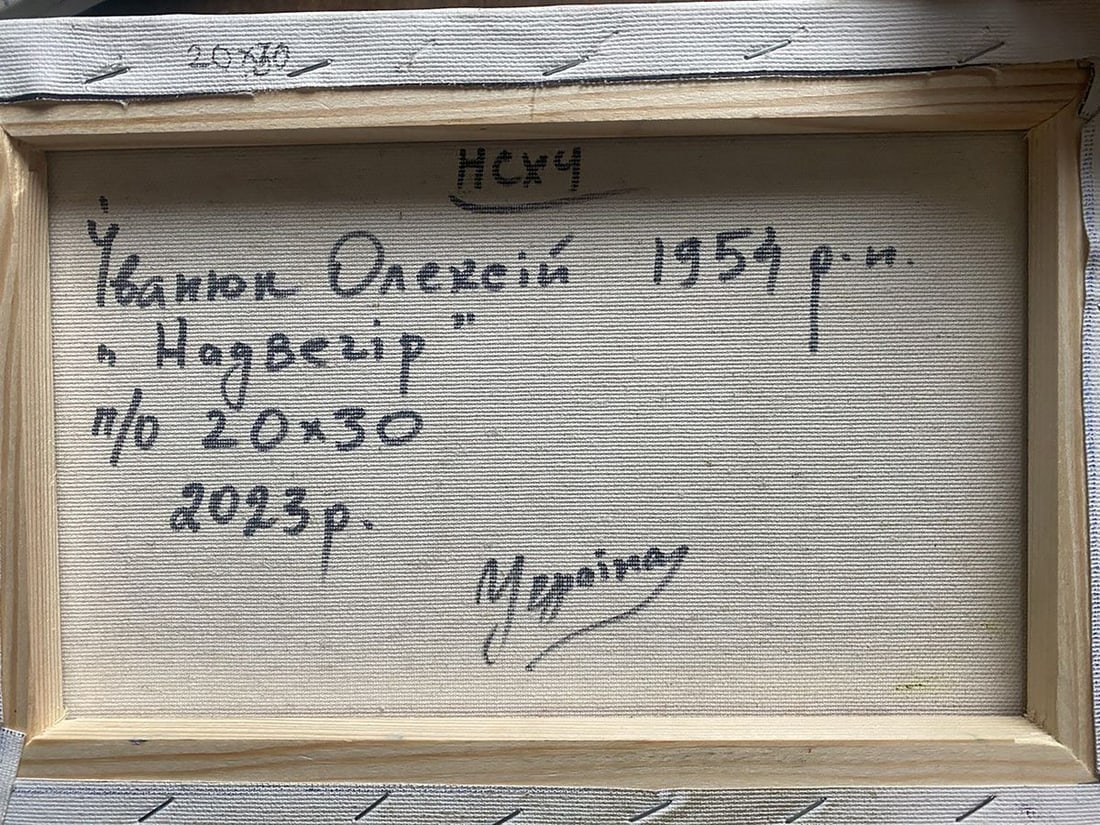 20x30
НСХУ
Іванюк Олексій 1954 р.н.
„Надвечір"
п/о 20x30
2023р.
Україна